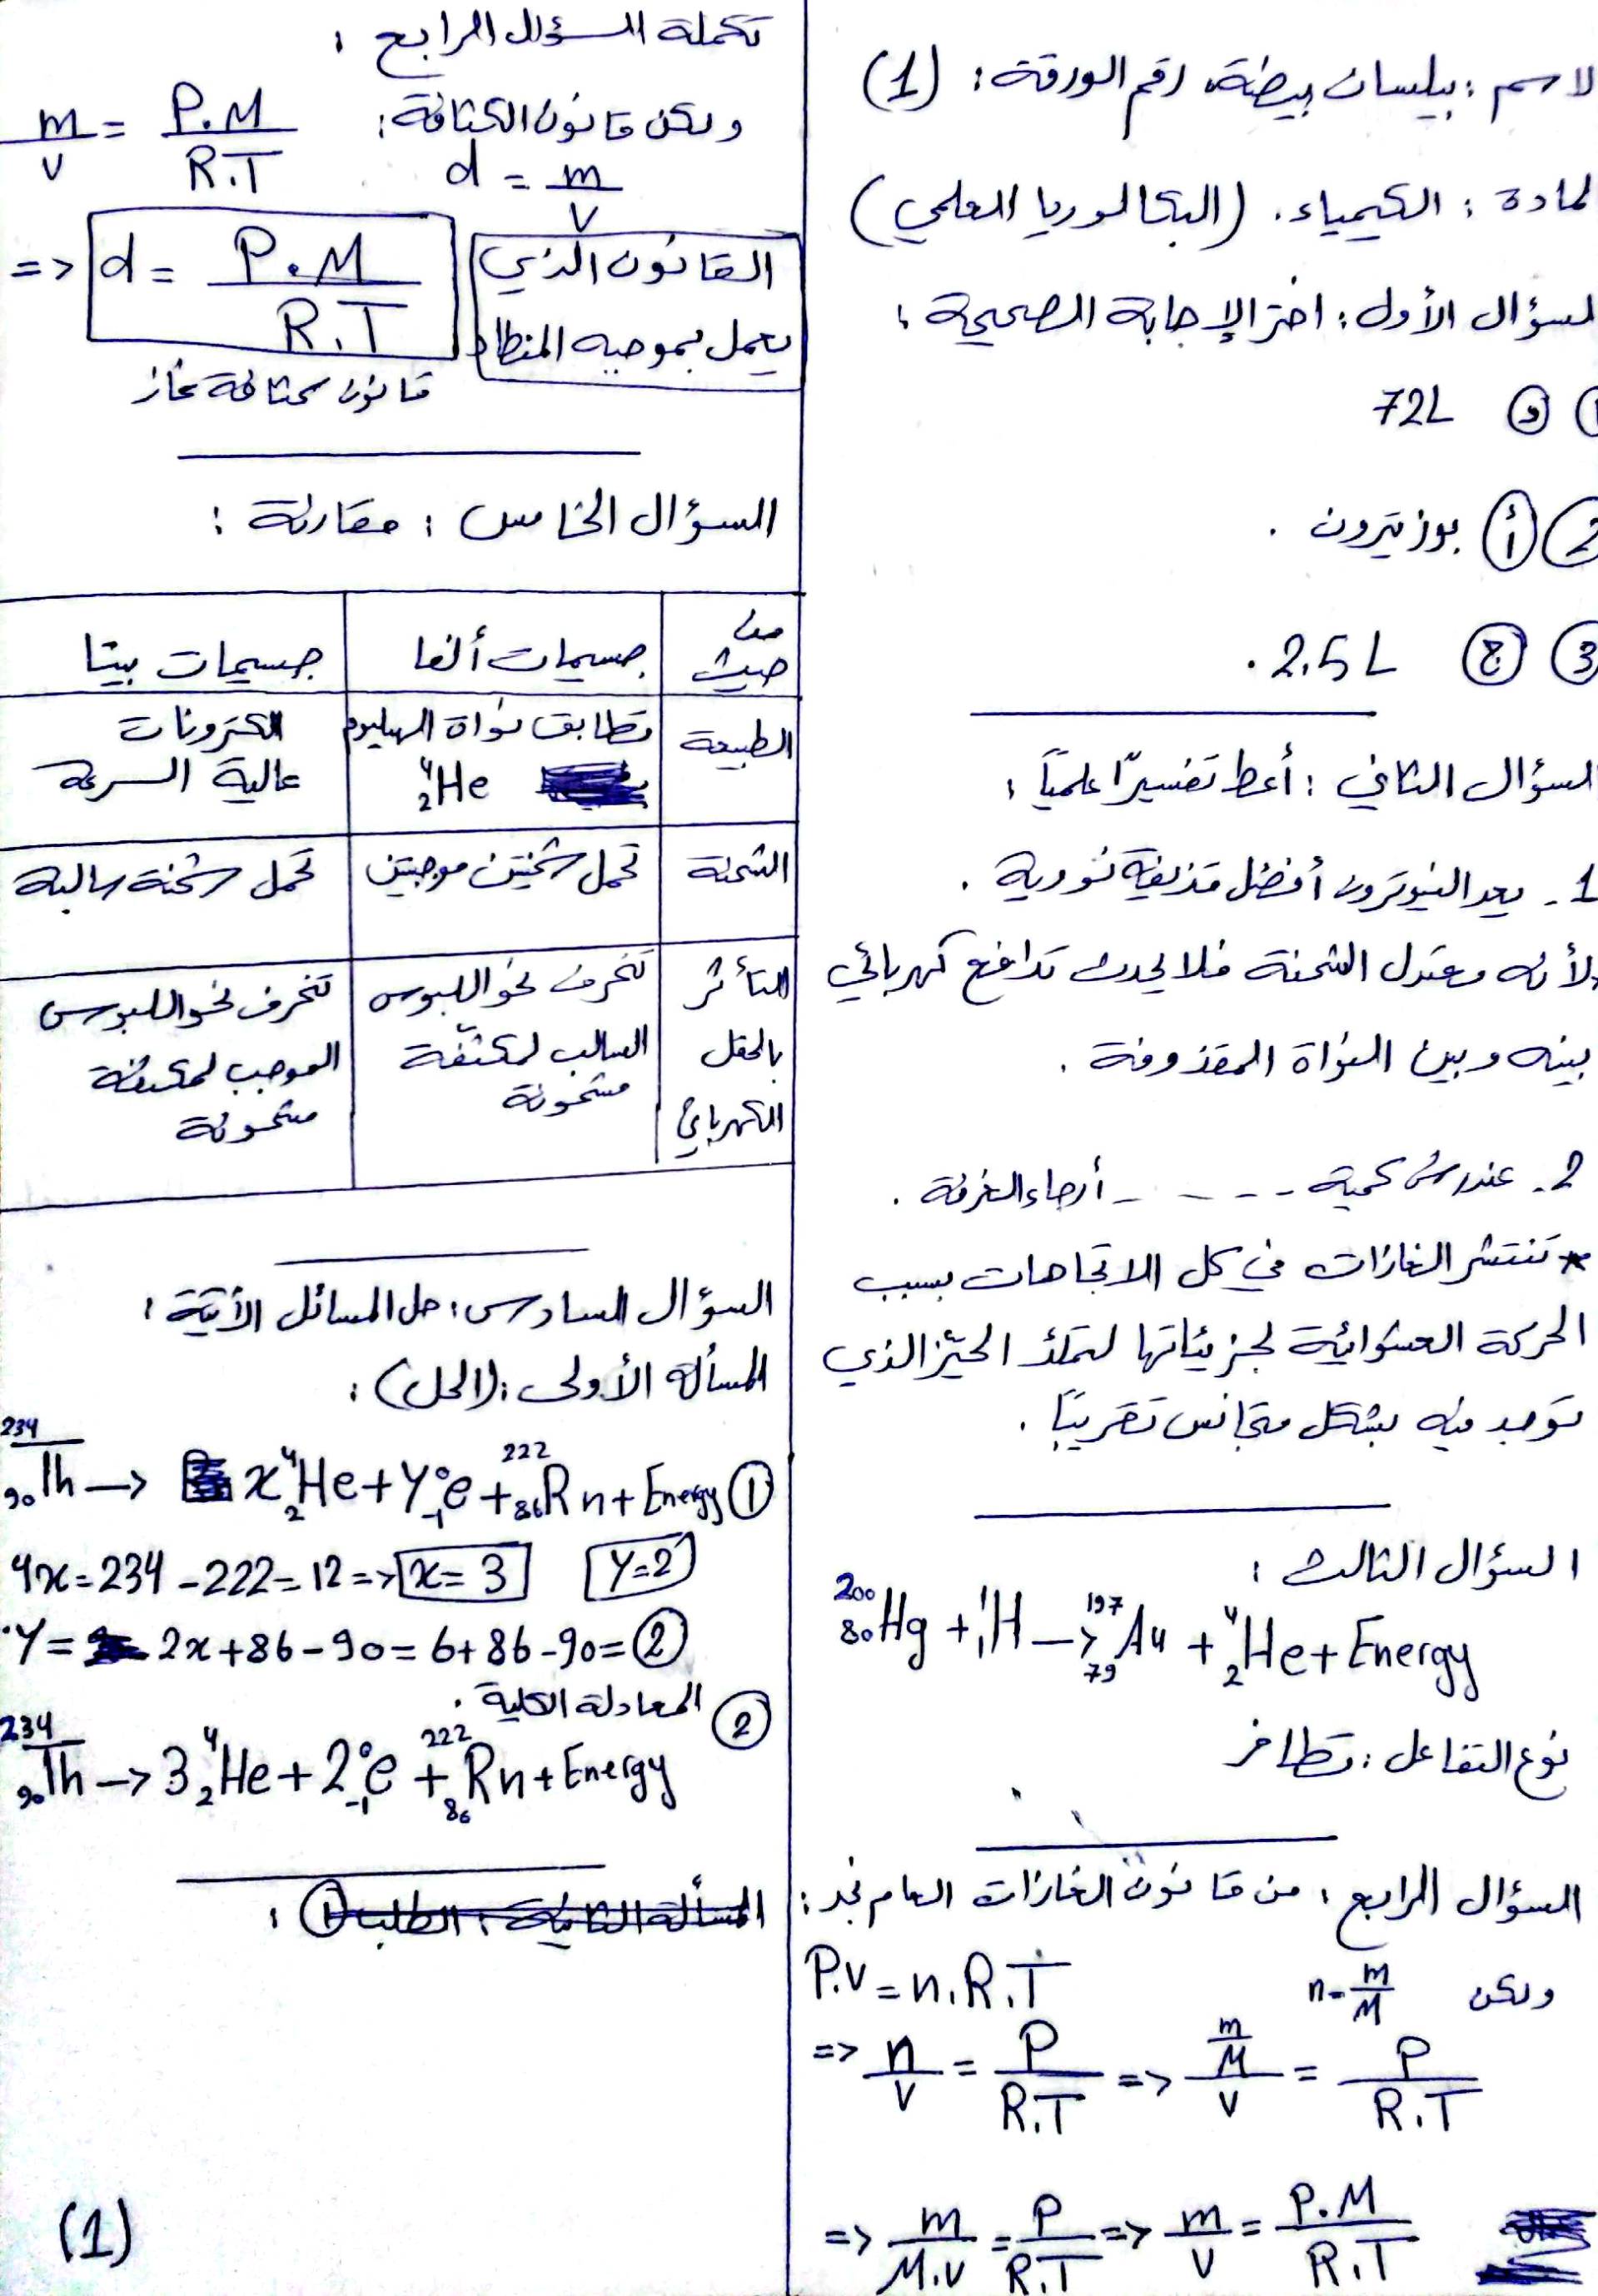 لاسم : بيلسان بيضة، رقم الورقة : (1)
لمادة : الكيمياء . (البكالوريا العلمي)
لسؤال الأول : اختر الإجابة الصحيحة :
1 د 72L
2 أ بوزيترون .
3 ج 2.5 L .
السؤال الثاني : أعط تفسيراً علمياً :
1- يعد النيوترون أفضل قذيفة نووية .
لأنه معتدل الشحنة فلا يحدث تدافع كهربائي
بينه وبين النواة المقذوفة .
2- عند رش كمية - - - - - أرجاء الغرفة .
* تنتشر الغازات في كل الاتجاهات بسبب
الحركة العشوائية لجزيئاتها لتملأ الحيّز الذي
توجد فيه بشكل متجانس تقريباً .
السؤال الثالث :
²⁰⁰₈₀Hg + ¹₁H → ¹⁹⁷₇₉Au + ⁴₂He + Energy
نوع التفاعل : تطافر
السؤال الرابع : من قانون الغازات العام نجد :
P.V = n.R.T ولكن n = m/M
=> n/V = P/R.T => (m/M)/V = P/R.T
=> m/M.V = P/R.T => m/V = P.M/R.T
تكملة السؤال الرابع :
m/V = P.M/R.T ولكن قانون الكثافة :
d = m/V
=> d = P.M/R.T
القانون الذي
يعمل بموجبه المنطاد
قانون كثافة غاز
السؤال الخامس : مقارنة :
من حيث | جسيمات ألفا | جسيمات بيتا
الطبيعة | تطابق نواة الهيليوم ⁴₂He | الكترونات عالية السرعة
الشحنة | تحمل شحنتين موجبتين | تحمل شحنة سالبة
التأثر بالحقل الكهربائي | تنحرف نحو اللبوس السالب لمكثّفة مشحونة | تنحرف نحو اللبوس الموجب لمكثفة مشحونة
السؤال السادس : حل المسائل الآتية :
المسألة الأولى : (الحل) :
²³⁴₉₀Th → x⁴₂He + y⁰₋₁e + ²²²₈₆Rn + Energy ①
4x = 234 - 222 = 12 => x = 3 y = 2
y = 2x + 86 - 90 = 6 + 86 - 90 = 2
② المعادلة الكلية .
²³⁴₉₀Th → 3⁴₂He + 2⁰₋₁e + ²²²₈₆Rn + Energy
المسألة الثانية : الطلب ① :
(1)